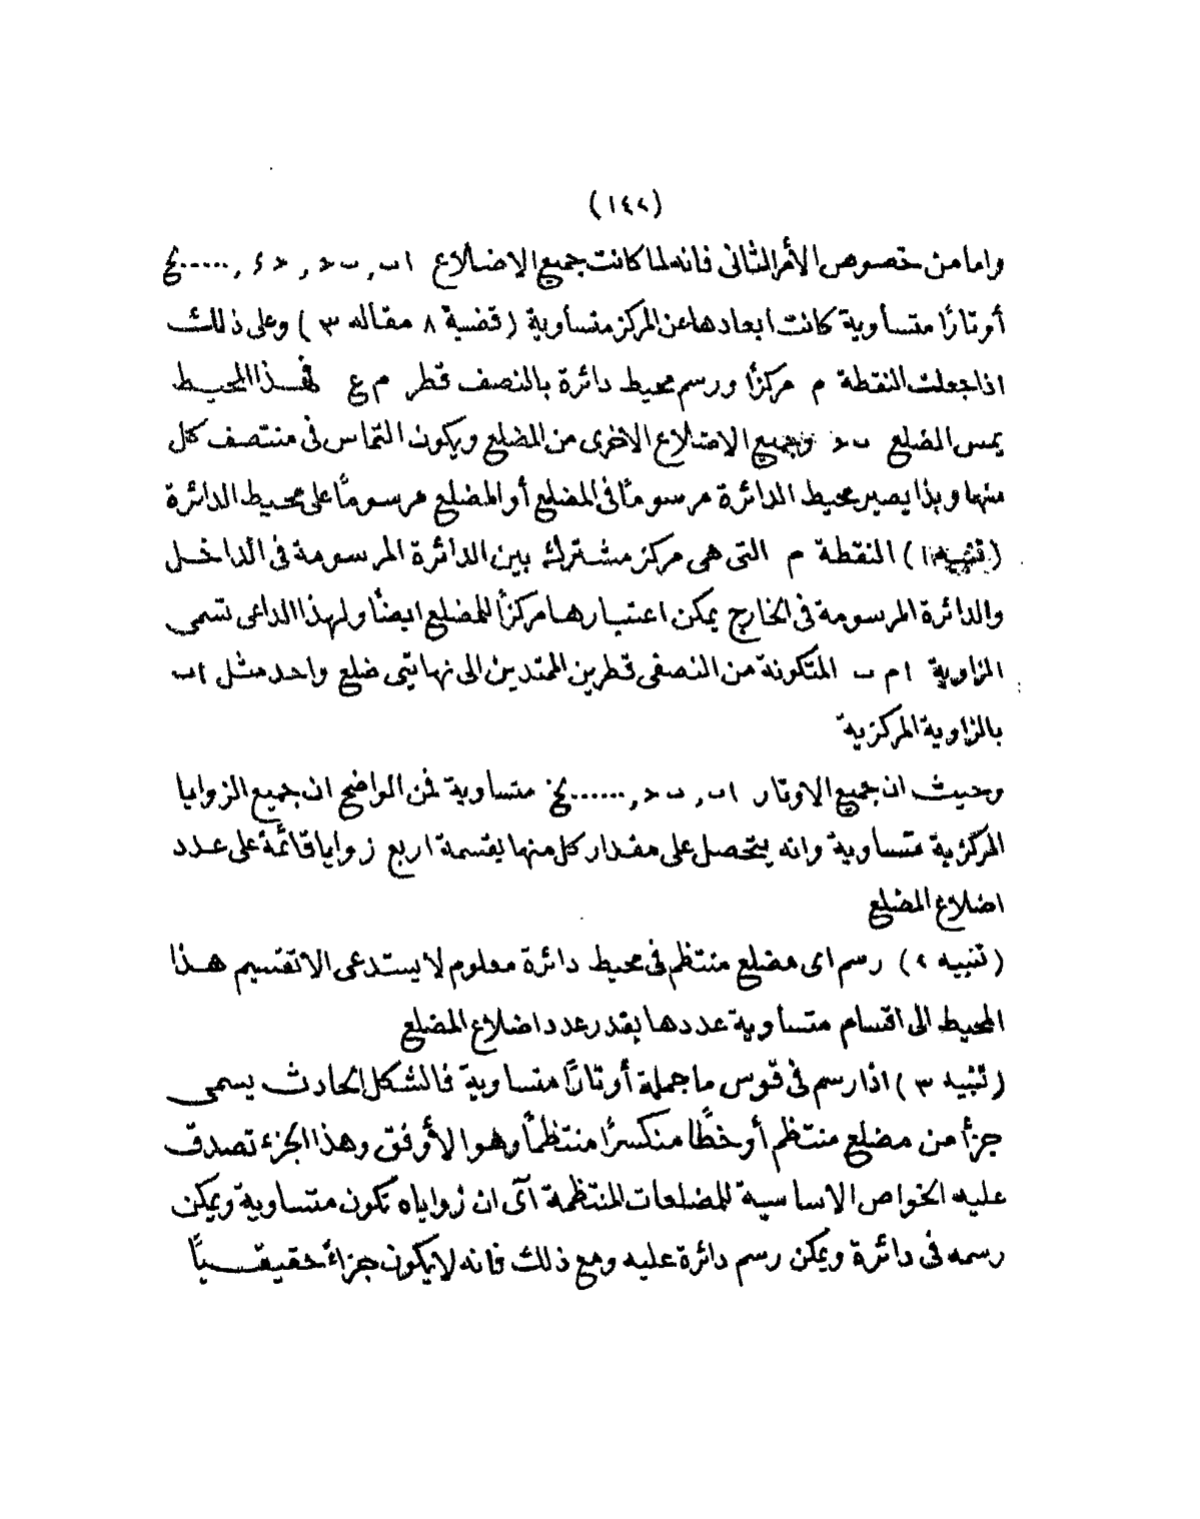 (١٤٢)
واما من خصوص الأمر الثانى فانه لما كانت جميع الاضلاع ا ب , ب ح , ح ء , ..... الخ
أوتارًا متساوية كانت ابعادها عن المركز متساوية (قضية ٨ مقاله ٣ ) وعلى ذلك
اذا جعلت النقطة م مركزًا ورسم محيط دائرة بالنصف قطر م ع فهذا المحيط
يمس المضلع ب ح وجميع الاضلاع الاخرى من المضلع ويكون التماس فى منتصف كل
منها وبذا يصير محيط الدائرة مرسومًا فى المضلع أو المضلع مرسومًا على محيط الدائرة
(تنبيه ١) النقطة م التى هى مركز مشترك بين الدائرة المرسومة فى الداخل
والدائرة المرسومة فى الخارج يمكن اعتبارها مركزًا للمضلع ايضًا ولهذا الداعى تسمى
الزاوية ا م ب المتكونة من النصفى قطرين الممتدين الى نهايتى ضلع واحد مثل ا ب
بالزاوية المركزية
وحيث ان جميع الاوتار ا ب , ب ح , ...... الخ متساوية فمن الواضح ان جميع الزوايا
المركزية متساوية وانه يتحصل على مقدار كل منها بقسمة اربع زوايا قائمة على عدد
اضلاع المضلع
(تنبيه ٢) رسم اى مضلع منتظم فى محيط دائرة معلوم لا يستدعى الا تقسيم هذا
المحيط الى اقسام متساوية عددها بقدر عدد اضلاع المضلع
(تنبيه ٣) اذا رسم فى قوس ما جملة أوتارًا متساوية فالشكل الحادث يسمى
جزأ من مضلع منتظم أو خطًا منكسرًا منتظمًا وهو الأوفق وهذا الجزء تصدق
عليه الخواص الاساسية للمضلعات المنتظمة آى ان زواياه تكون متساوية ويمكن
رسمه فى دائرة ويمكن رسم دائرة عليه ومع ذلك فانه لا يكون جزاءً حقيقيًا